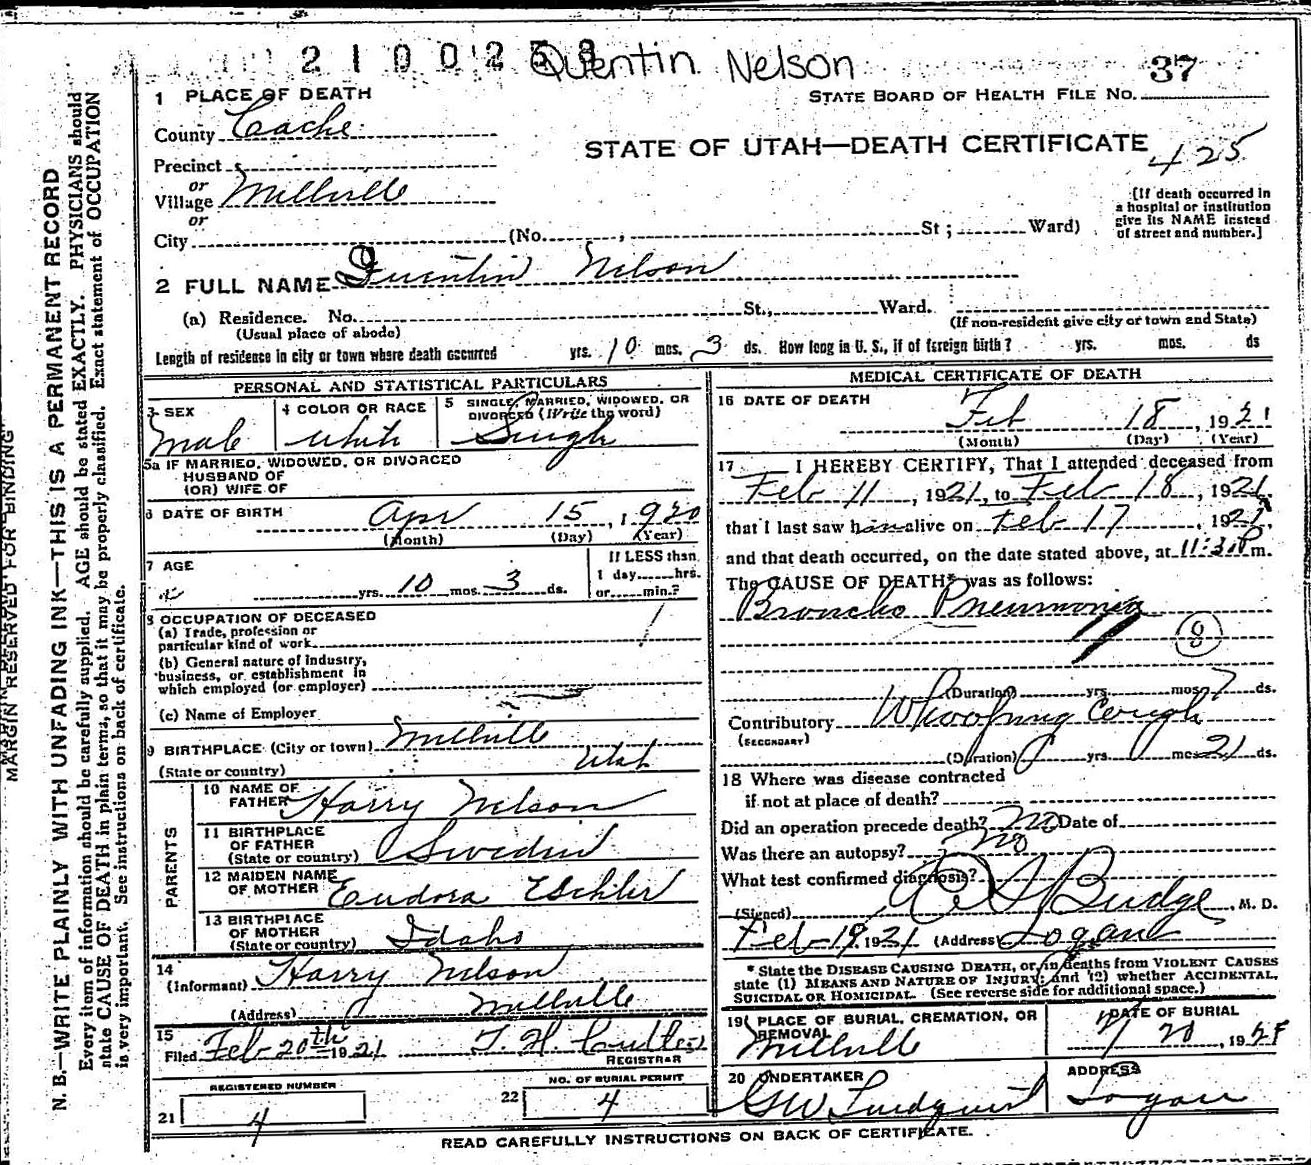 2100258 Quentin Nelson
37
STATE BOARD OF HEALTH FILE NO.
STATE OF UTAH—DEATH CERTIFICATE
425
1 PLACE OF DEATH
County Cache
Precinct
or
Village Millville
or
City (No. , St ; Ward)
[If death occurred in
a hospital or institution
give its NAME instead
of street and number.]
2 FULL NAME Quentin Nelson
(a) Residence. No. St., Ward.
(Usual place of abode)
(If non-resident give city or town and State)
Length of residence in city or town where death occurred yrs. 10 mos. 3 ds. How long in U. S., if of foreign birth? yrs. mos. ds
PERSONAL AND STATISTICAL PARTICULARS
3 SEX
Male
4 COLOR OR RACE
White
5 SINGLE, MARRIED, WIDOWED, OR
DIVORCED (Write the word)
Single
5a IF MARRIED, WIDOWED, OR DIVORCED
HUSBAND OF
(OR) WIFE OF
6 DATE OF BIRTH Apr 15, 1920
(Month) (Day) (Year)
7 AGE
yrs. 10 mos. 3 ds.
If LESS than
1 day......hrs.
or......min.?
8 OCCUPATION OF DECEASED
(a) Trade, profession or
particular kind of work
(b) General nature of industry,
business, or establishment in
which employed (or employer)
(c) Name of Employer
9 BIRTHPLACE (City or town) Millville
(State or country) Utah
PARENTS
10 NAME OF
FATHER Harry Nelson
11 BIRTHPLACE
OF FATHER
(State or country) Sweden
12 MAIDEN NAME
OF MOTHER Eudora Eschler
13 BIRTHPLACE
OF MOTHER
(State or country) Idaho
14
(Informant) Harry Nelson
(Address) Millville
15
Filed Feb 20th 1921 T. H.
REGISTRAR
REGISTERED NUMBER
21 4
NO. OF BURIAL PERMIT
22 4
MEDICAL CERTIFICATE OF DEATH
16 DATE OF DEATH
Feb 18, 1921
(Month) (Day) (Year)
17 I HEREBY CERTIFY, That I attended deceased from
Feb 11, 1921, to Feb 18, 1921,
that I last saw him alive on Feb 17, 1921,
and that death occurred, on the date stated above, at 11:30 P m.
The CAUSE OF DEATH* was as follows:
Broncho Pneumonia
8
(Duration) yrs. mos. 7 ds.
Contributory Whooping Cough
(SECONDARY)
(Duration) yrs. mos. 21 ds.
18 Where was disease contracted
if not at place of death?
Did an operation precede death? No Date of
Was there an autopsy? No
What test confirmed diagnosis?
(Signed) Budge, M. D.
Feb 19, 1921 (Address) Logan
* State the DISEASE CAUSING DEATH, or, in deaths from VIOLENT CAUSES
state (1) MEANS AND NATURE OF INJURY; and (2) whether ACCIDENTAL,
SUICIDAL OR HOMICIDAL. (See reverse side for additional space.)
19 PLACE OF BURIAL, CREMATION, OR
REMOVAL
Millville
DATE OF BURIAL
20, 192
20 UNDERTAKER
GW Lindquist
ADDRESS
Logan
READ CAREFULLY INSTRUCTIONS ON BACK OF CERTIFICATE.
MARGIN RESERVED FOR BINDING
N. B.—WRITE PLAINLY WITH UNFADING INK—THIS IS A PERMANENT RECORD
Every item of information should be carefully supplied. AGE should be stated EXACTLY. PHYSICIANS should
state CAUSE OF DEATH in plain terms, so that it may be properly classified. Exact statement of OCCUPATION
is very important. See instructions on back of certificate.